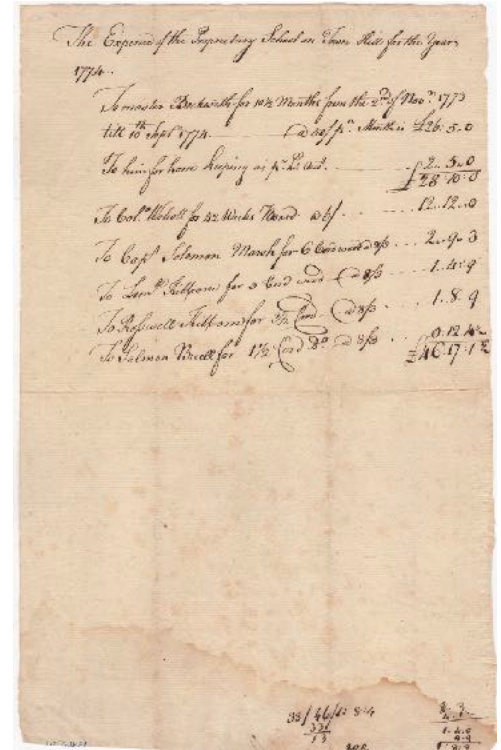 The Expence of the Proprietary School on Town Hill for the Year
1774
To master Beckwith for 10½ Months from the 2nd of Novr 1773
till 16th Sept 1774 @ 50/ pr Month is £26:5.0
To him for horse keeping as pr his acct 2..5.0
£28:10:0
To Colo Wolcott for 42 Weeks Board at 6/ 12.12..0
To Capt Solomon Marsh for 6 Cord wood @ 8/3 2..9.3
To Kilborn for 3 Cord wood @ 8/3 1.4:9
To Rosswell Kilborn for 3½ Cord @ 8/3 1.8.9
To Salmon Buell for 1½ Cord Do @ 8/3 0.12.4½
£46:17:1½